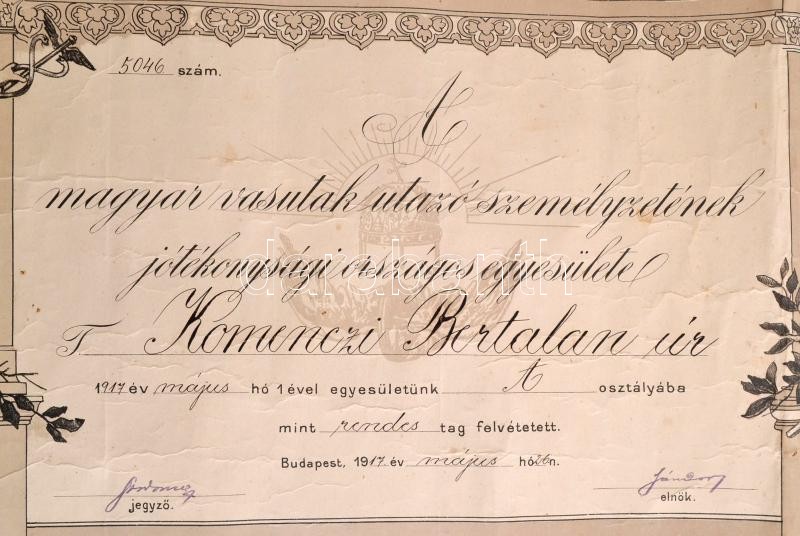 5046 szám.
A
magyar vasutak utazó személyzetének
jótékonysági országos egyesülete
T Komenczi Bertalan úr
1917 év május hó 1ével egyesületünk A osztályába
mint rendes tag felvétetett.
Budapest, 1917. év május hó 26n.
jegyző.
Sándor
elnök.